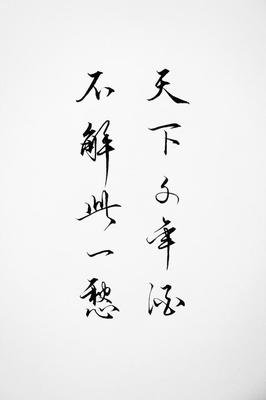 天下年酒
不解此一愁